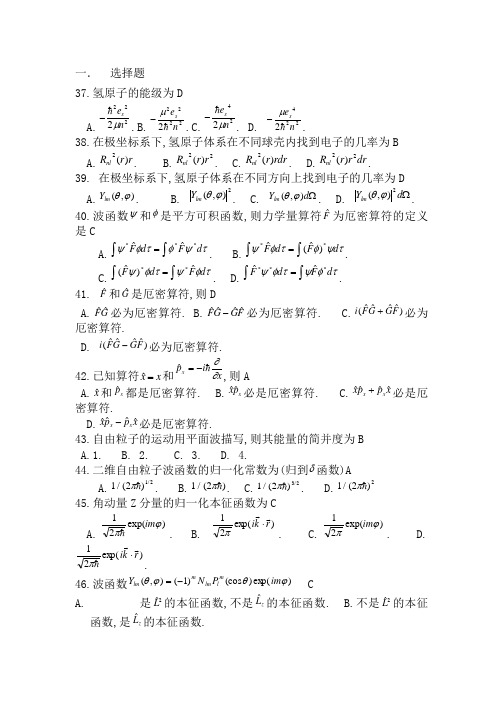 一． 选择题
37.氢原子的能级为D
A. $-\frac{\hbar^2 e_s^2}{2\mu n^2}$. B. $-\frac{\mu^2 e_s^2}{2\hbar^2 n^2}$. C. $-\frac{\hbar e_s^4}{2\mu n^2}$. D. $-\frac{\mu e_s^4}{2\hbar^2 n^2}$.
38.在极坐标系下,氢原子体系在不同球壳内找到电子的几率为B
A. $R_{nl}^2(r)r$. B. $R_{nl}^2(r)r^2$. C. $R_{nl}^2(r)rdr$. D. $R_{nl}^2(r)r^2dr$.
39. 在极坐标系下,氢原子体系在不同方向上找到电子的几率为D
A. $Y_{lm}(\theta,\varphi)$. B. $|Y_{lm}(\theta,\varphi)|^2$. C. $Y_{lm}(\theta,\varphi)d\Omega$. D. $|Y_{lm}(\theta,\varphi)|^2 d\Omega$.
40.波函数$\psi$和$\phi$是平方可积函数,则力学量算符$\hat{F}$为厄密算符的定义
是C
A. $\int\psi^*\hat{F}\phi d\tau=\int\phi^*\hat{F}\psi^*d\tau$. B. $\int\psi^*\hat{F}\phi d\tau=\int(\hat{F}\phi)^*\psi d\tau$.
C. $\int(\hat{F}\psi)^*\phi d\tau=\int\psi^*\hat{F}\phi d\tau$. D. $\int\hat{F}^*\psi^*\phi d\tau=\int\psi\hat{F}\phi^*d\tau$.
41. $\hat{F}$和$\hat{G}$是厄密算符,则D
A. $\hat{F}\hat{G}$必为厄密算符. B. $\hat{F}\hat{G}-\hat{G}\hat{F}$必为厄密算符. C. $i(\hat{F}\hat{G}+\hat{G}\hat{F})$必为
厄密算符.
D. $i(\hat{F}\hat{G}-\hat{G}\hat{F})$必为厄密算符.
42.已知算符$\hat{x}=x$和$\hat{p}_x=-i\hbar\frac{\partial}{\partial x}$,则A
A. $\hat{x}$和$\hat{p}_x$都是厄密算符. B. $\hat{x}\hat{p}_x$必是厄密算符. C. $\hat{x}\hat{p}_x+\hat{p}_x\hat{x}$必是厄
密算符.
D. $\hat{x}\hat{p}_x-\hat{p}_x\hat{x}$必是厄密算符.
43.自由粒子的运动用平面波描写,则其能量的简并度为B
A.1. B. 2. C. 3. D. 4.
44.二维自由粒子波函数的归一化常数为(归到$\delta$函数)A
A. $1/(2\pi\hbar)^{1/2}$. B. $1/(2\pi\hbar)$. C. $1/(2\pi\hbar)^{3/2}$. D. $1/(2\pi\hbar)^2$
45.角动量Z分量的归一化本征函数为C
A. $\frac{1}{\sqrt{2\pi\hbar}}\exp(im\varphi)$. B. $\frac{1}{\sqrt{2\pi}}\exp(i\vec{k}\cdot\vec{r})$. C. $\frac{1}{\sqrt{2\pi}}\exp(im\varphi)$. D.
$\frac{1}{\sqrt{2\pi\hbar}}\exp(i\vec{k}\cdot\vec{r})$.
46.波函数$Y_{lm}(\theta,\varphi)=(-1)^m N_{lm}P_l^m(\cos\theta)\exp(im\varphi)$ C
A. 是$\hat{L}^2$的本征函数,不是$\hat{L}_z$的本征函数. B.不是$\hat{L}^2$的本征
函数,是$\hat{L}_z$的本征函数.